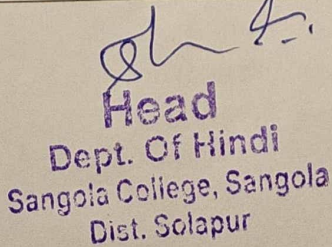 Head
Dept. Of Hindi
Sangola College, Sangola
Dist. Solapur